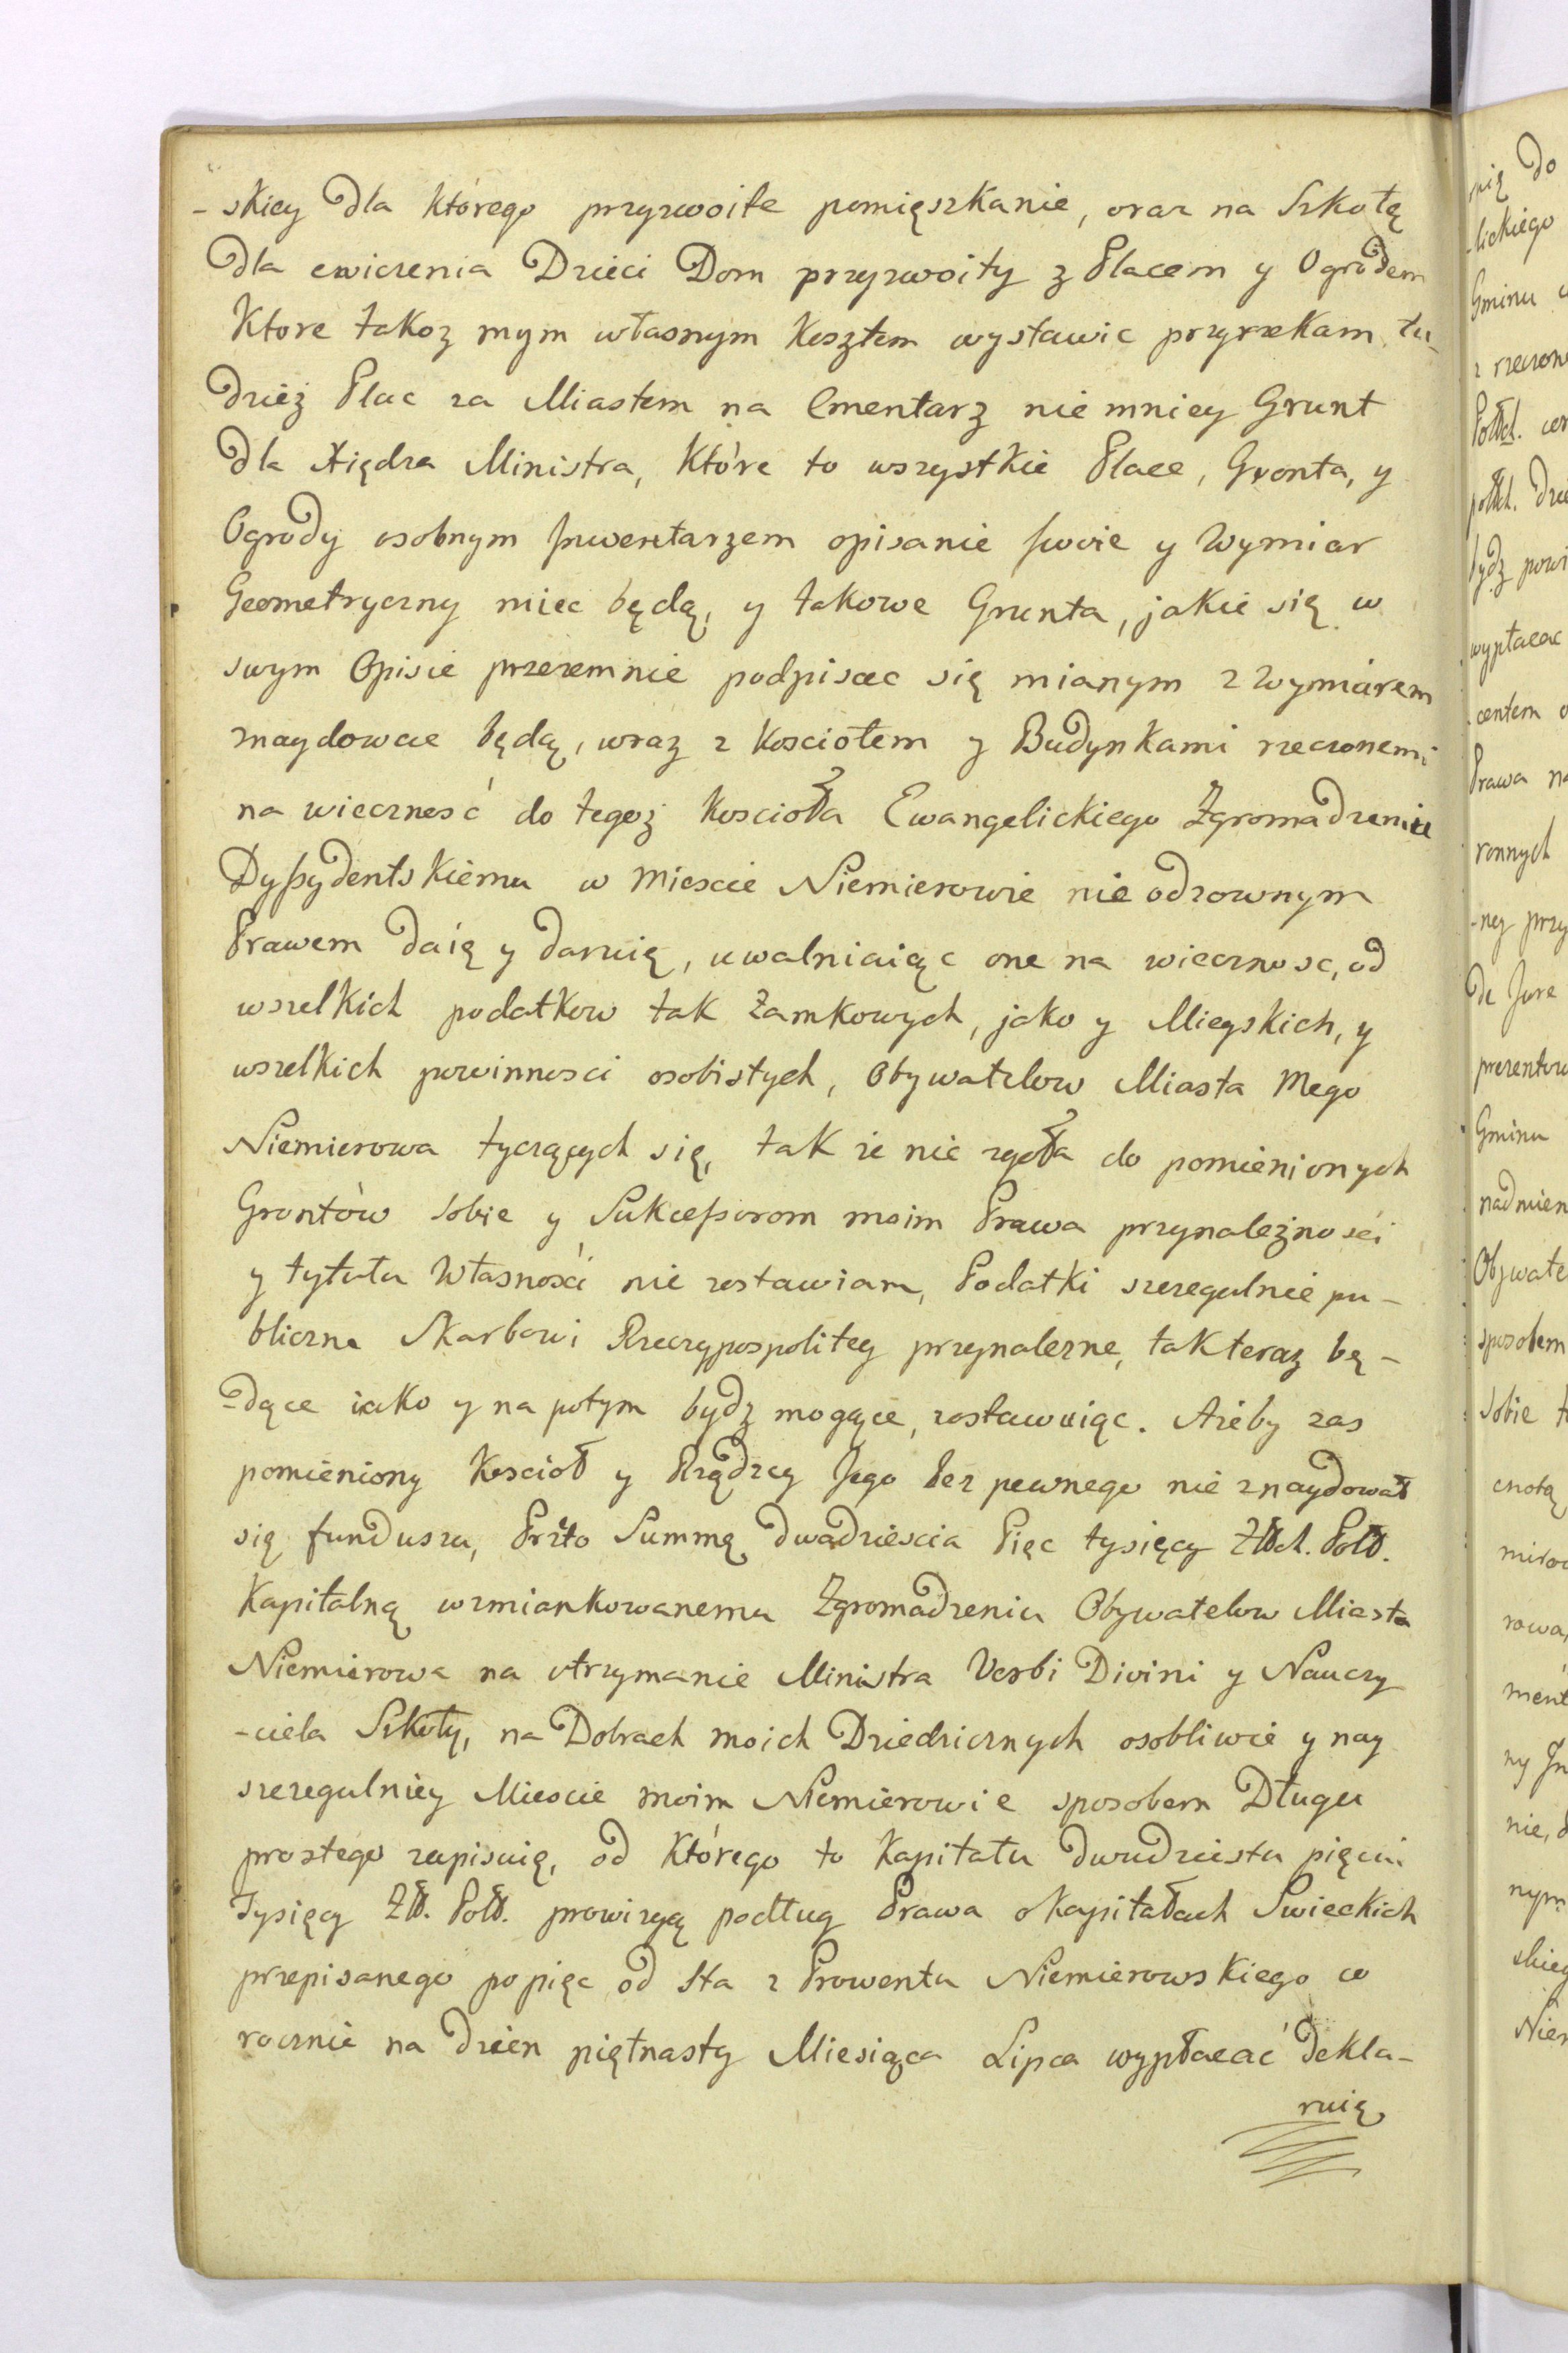 -skiey dla którego przyzwoite pomięszkanie, oraz na Szkołę
dla cwiczenia Dzieci Dom przyzwoity z Placem y Ogrodem
Ktore takoz mym własnym Kosztem wystawic przyrzekam, tu-
dzież Plac za Miastem na Cmentarz nie mniey Grunt
dla Xiędza Ministra, Które to wszystkie Place, Gronta, y
Ogrody osobnym Inwentarzem opisanie swoie y Wymiar
Geometryczny miec będą, y takowe Grunta, jakie się w
swym Opisie przezemnie podpisac się mianym z Wymiarem
znaydowac będą, wraz z Kosciołem y Budynkami rzeczonemi
na wiecznosć do tegoż Koscioła Ewangelickiego Zgromadzeniu
Dyssydentskiemu w Miescie Niemierowie nie odzownym
Prawem daię y daruię, uwalniaiąc one na wiecznosc, od
wszelkich podatkow tak Zamkowych, jako y Mieyskich, y
wszelkich powinnosci osobistych, Obywatelow Miasta Mego
Niemierowa tyczących się, tak że nic zgoła do pomienionych
Grontów sobie y Sukcessorom moim Prawa przynależnosći
y tytułu Własnośći nie zostawiam, Podatki szczegulnie pu-
bliczne Skarbowi Rzeczypospolitey przynalezne, tak teraz bę-
-dące iako y na potym bydz mogące, zostawuiąc. Ażeby zas
pomieniony Koscioł y Rządzcy Jego bez pewnego nie znaydował
się funduszu, Przto Summę dwadziescia Pięc tysięcy Złłch. Poll.
Kapitalną wzmiankowanemu Zgromadzeniu Obywatelow Miasta
Niemierowa na utrzymanie Ministra Verbi Divini y Nauczy
-ciela Szkoły, na Dobrach moich Dziedzicznych osobliwie y nay
szczegulniey Miescie moim Niemierowie sposobem Długu
prostego zapisuię, od Którego to Kapitału dwudziestu pięciu
Tysięcy Złł. Poll. prowizyą podług Prawa o Kapitałach Swieckich
przepisanego po pięc od Sta z Prowentu Niemierowskiego co
rocznie na dzien piętnasty Miesiąca Lipca wypłacać dekla-
ruię